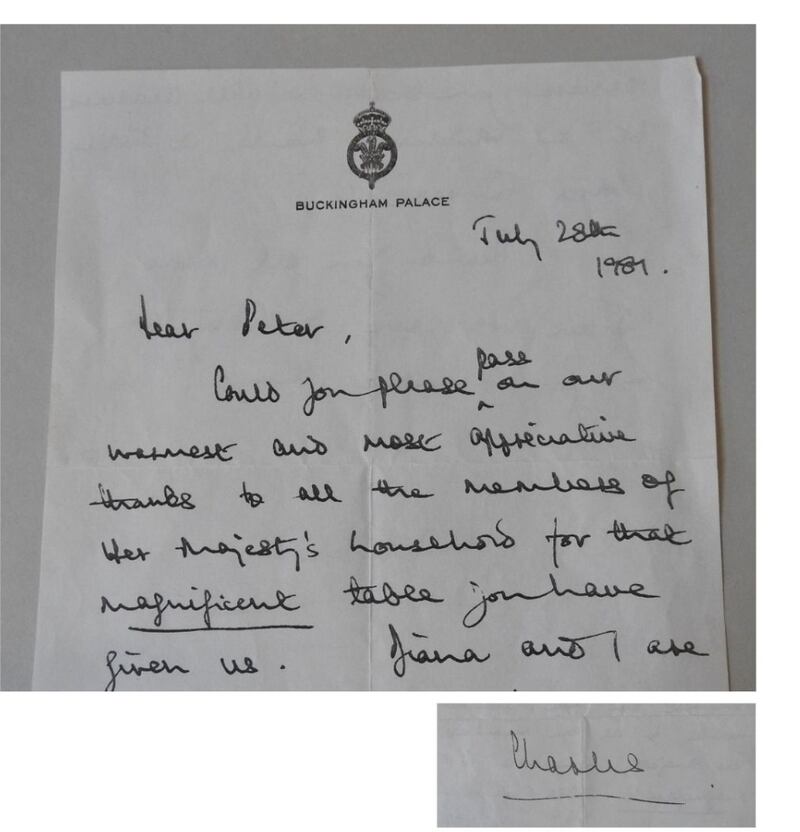 BUCKINGHAM PALACE
July 28th
1981.
Dear Peter,
pass
Could you please ^ on our
warmest and most appreciative
thanks to all the members of
Her Majesty's household for that
magnificent table you have
given us. Diana and I are
Charles